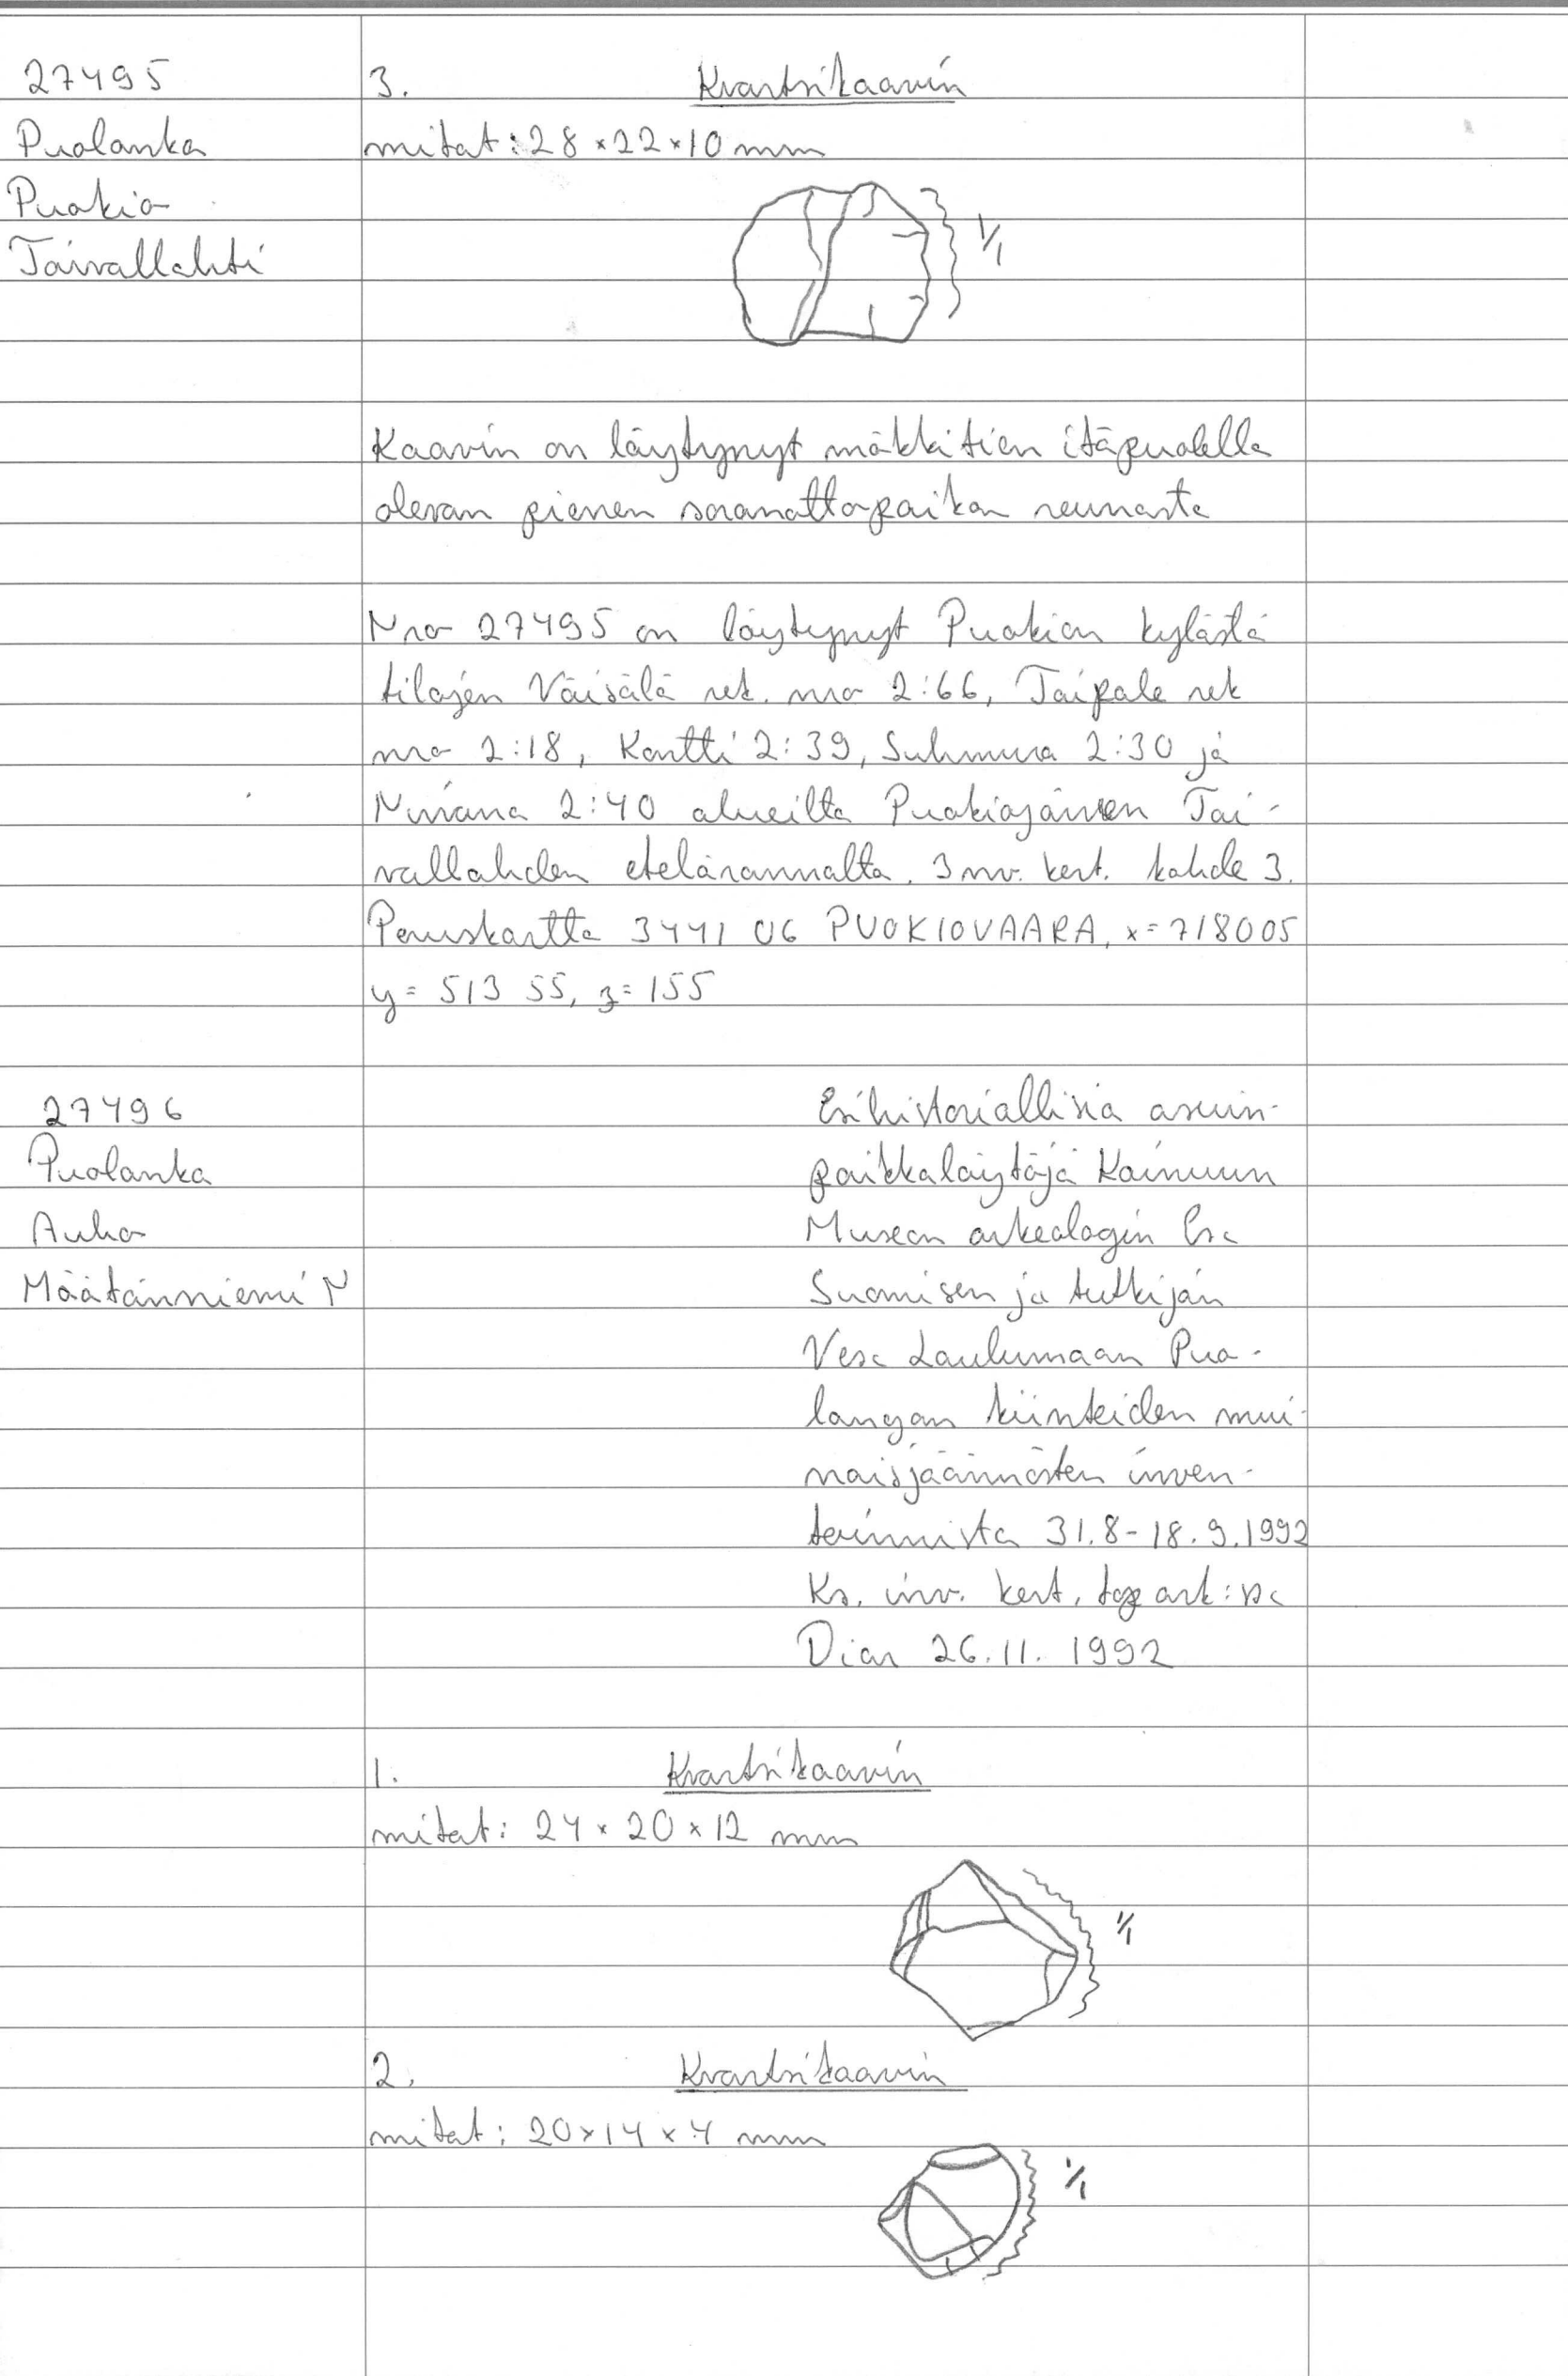 27495
Puolanka
Puokio
Taivallahti
3. Kvartsikaavin
mitat: 28 × 22 × 10 mm
1/1
Kaavin on löytynyt mökkitien itäpuolella
olevan pienen soranottopaikan reunasta
Nro 27495 on löytynyt Puokion kylästä
tilojen Väisälä rek. nro 2:66, Taipale rek
nro 2:18, Kontti 2:39, Suhmura 2:30 ja
2:40 alueilta Puokiojärven Tai-
vallahden etelärannalta. inv. kert. kohde 3.
Peruskartta 3441 06 PUOKIOVAARA, x= 718005
y= 513 55, z= 155
27496
Puolanka
Auho
Määtänniemi N
Esihistoriallisia asuin-
paikkalöytöjä Kainuun
Museon arkeologin Esa
Suomisen ja tutkijan
Vesa Laulumaan Puo-
langan kiinteiden mui-
naisjäännösten inven-
toinnista 31.8-18.9.1992
Ks. inv. kert. top ark:ssa
Diar 26.11. 1992
1. Kvartsikaavin
mitat: 24 × 20 × 12 mm
1/1
2. Kvartsikaavin
mitat: 20 × 14 × 4 mm
1/1